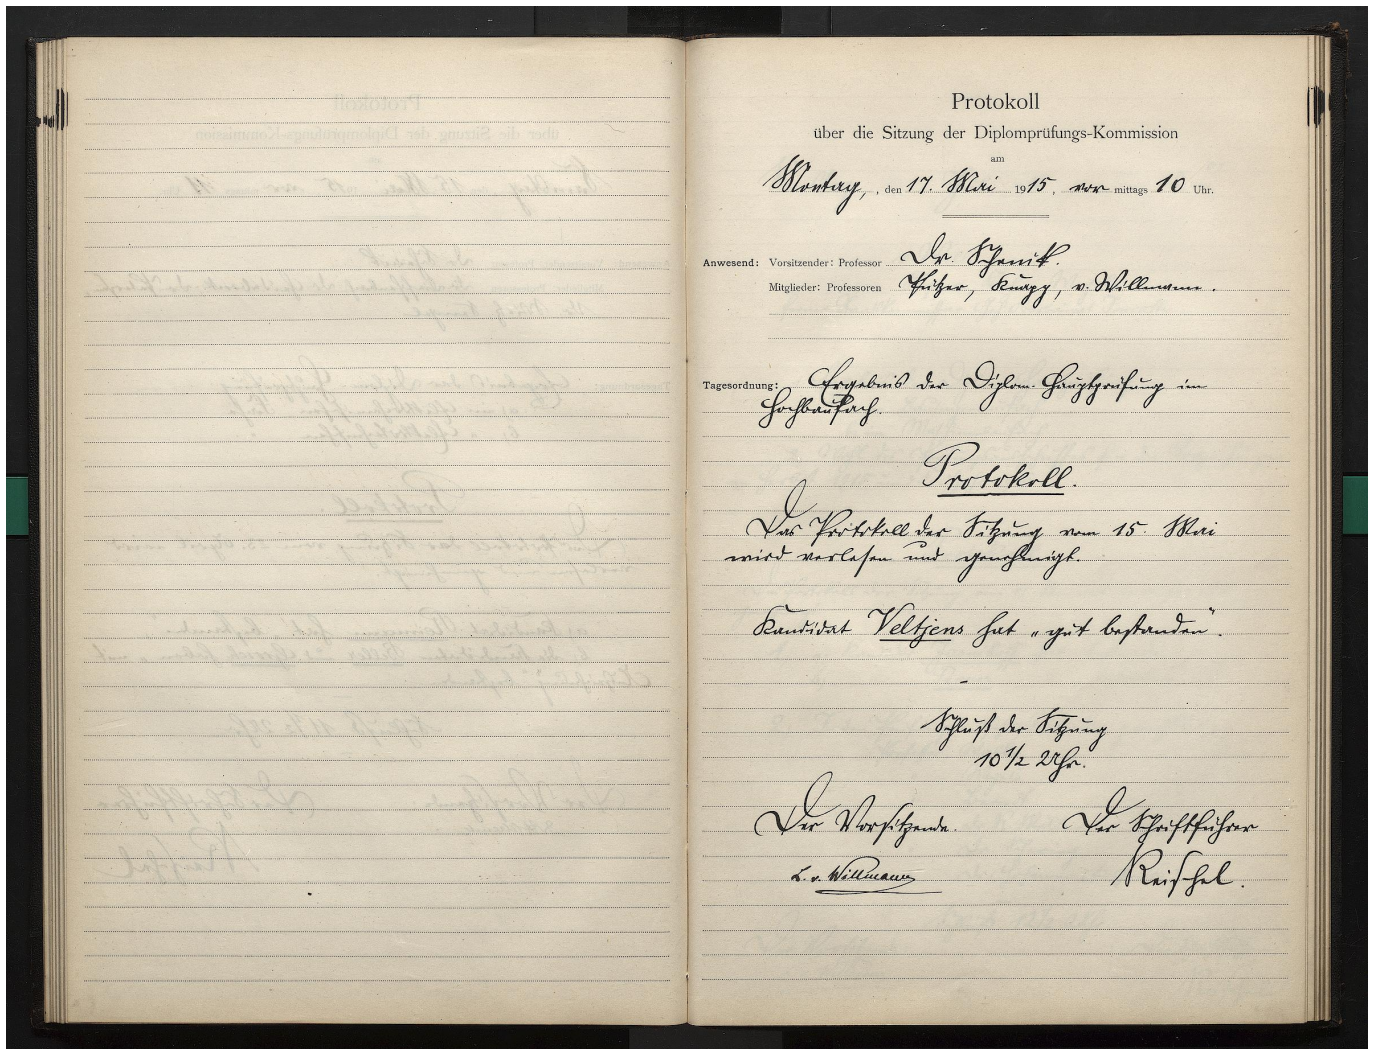 Protokoll
über die Sitzung der Diplomprüfungs-Kommission
am
Montag, , den 17. Mai 1915, vor mittags 10 Uhr.
Anwesend: Vorsitzender: Professor Dr. Schenck.
Mitglieder: Professoren Pützer, Knapp, v. Willmann.
Tagesordnung: Ergebnis der Diplom-Hauptprüfung im
Hochbaufach.
Protokoll.
Das Protokoll der Sitzung vom 15. Mai
wird verlesen und genehmigt.
Kandidat Veltjens hat „gut bestanden".
Schluß der Sitzung
10 1/2 Uhr.
Der Vorsitzende. Der Schriftführer
L. v. Willmann Reischel.